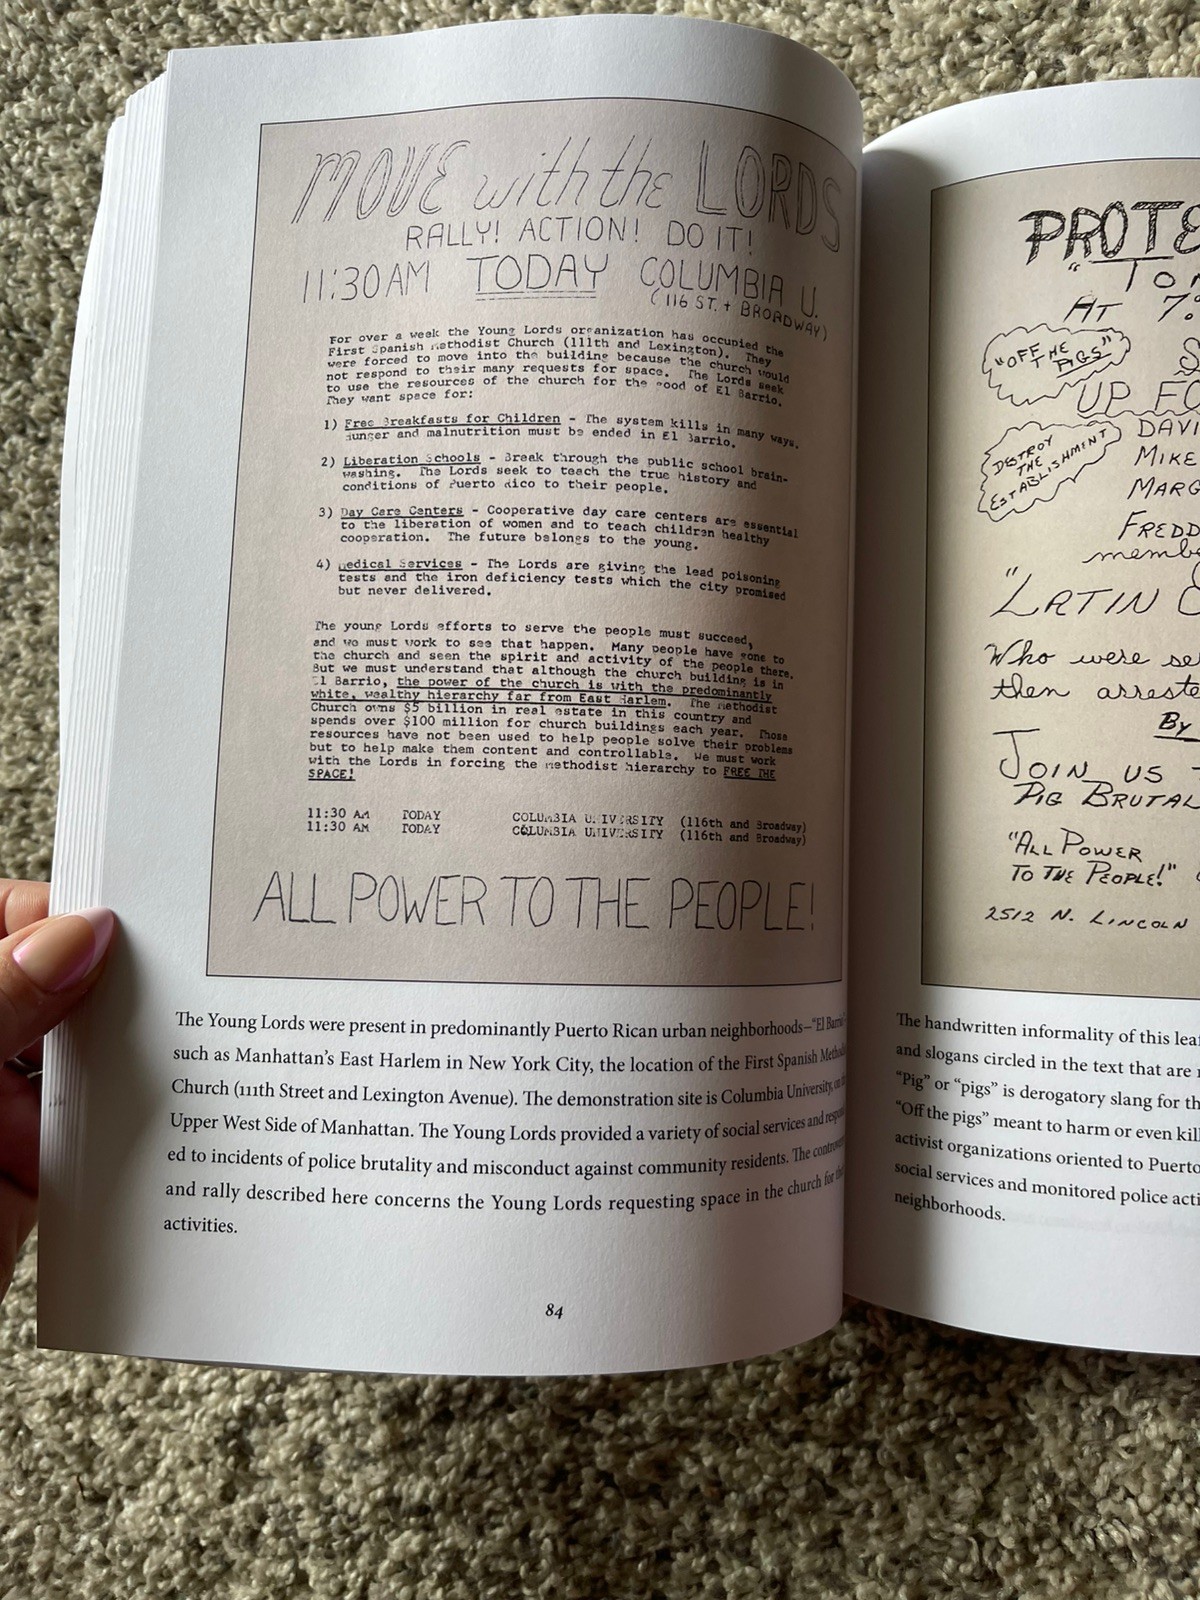 MOVE with the LORDS
RALLY! ACTION! DO IT!
11:30 AM TODAY COLUMBIA U.
(116 ST. + BROADWAY)
For over a week the Young Lords organization has occupied the
First Spanish Methodist Church (111th and Lexington). They
were forced to move into the building because the church would
not respond to their many requests for space. The Lords seek
to use the resources of the church for the good of El Barrio.
They want space for:
1) Free Breakfasts for Children - The system kills in many ways.
Hunger and malnutrition must be ended in El Barrio.
2) Liberation Schools - Break through the public school brain-
washing. The Lords seek to teach the true history and
conditions of Puerto Rico to their people.
3) Day Care Centers - Cooperative day care centers are essential
to the liberation of women and to teach children healthy
cooperation. The future belongs to the young.
4) Medical Services - The Lords are giving the lead poisoning
tests and the iron deficiency tests which the city promised
but never delivered.
The young Lords efforts to serve the people must succeed,
and we must work to see that happen. Many people have gone to
the church and seen the spirit and activity of the people there.
But we must understand that although the church building is in
El Barrio, the power of the church is with the predominantly
white, wealthy hierarchy far from East Harlem. The Methodist
Church owns $5 billion in real estate in this country and
spends over $100 million for church buildings each year. Those
resources have not been used to help people solve their problems
but to help make them content and controllable. We must work
with the Lords in forcing the Methodist hierarchy to FREE THE
SPACE!
11:30 AM TODAY COLUMBIA UNIVERSITY (116th and Broadway)
11:30 AM TODAY COLUMBIA UNIVERSITY (116th and Broadway)
ALL POWER TO THE PEOPLE!
The Young Lords were present in predominantly Puerto Rican urban neighborhoods—"El Barrio
such as Manhattan's East Harlem in New York City, the location of the First Spanish Methodist
Church (111th Street and Lexington Avenue). The demonstration site is Columbia University, on
Upper West Side of Manhattan. The Young Lords provided a variety of social services and respond-
ed to incidents of police brutality and misconduct against community residents. The
and rally described here concerns the Young Lords requesting space in the church for
activities.
84
PROTE
"TO
AT 7:
"OFF THE PIGS"
UP FO
DAVI
DESTROY
THE
ESTABLISHMENT
MIKE
MARG
FREDD
membe
"LATIN
Who were se
then arreste
By
JOIN US
PIG BRUTAL
"ALL POWER
TO THE PEOPLE!"
2512 N. LINCOLN
The handwritten informality of this lea
and slogans circled in the text that are
"Pig" or "pigs" is derogatory slang for th
"Off the pigs" meant to harm or even kil
activist organizations oriented to Puerto
social services and monitored police acti
neighborhoods.